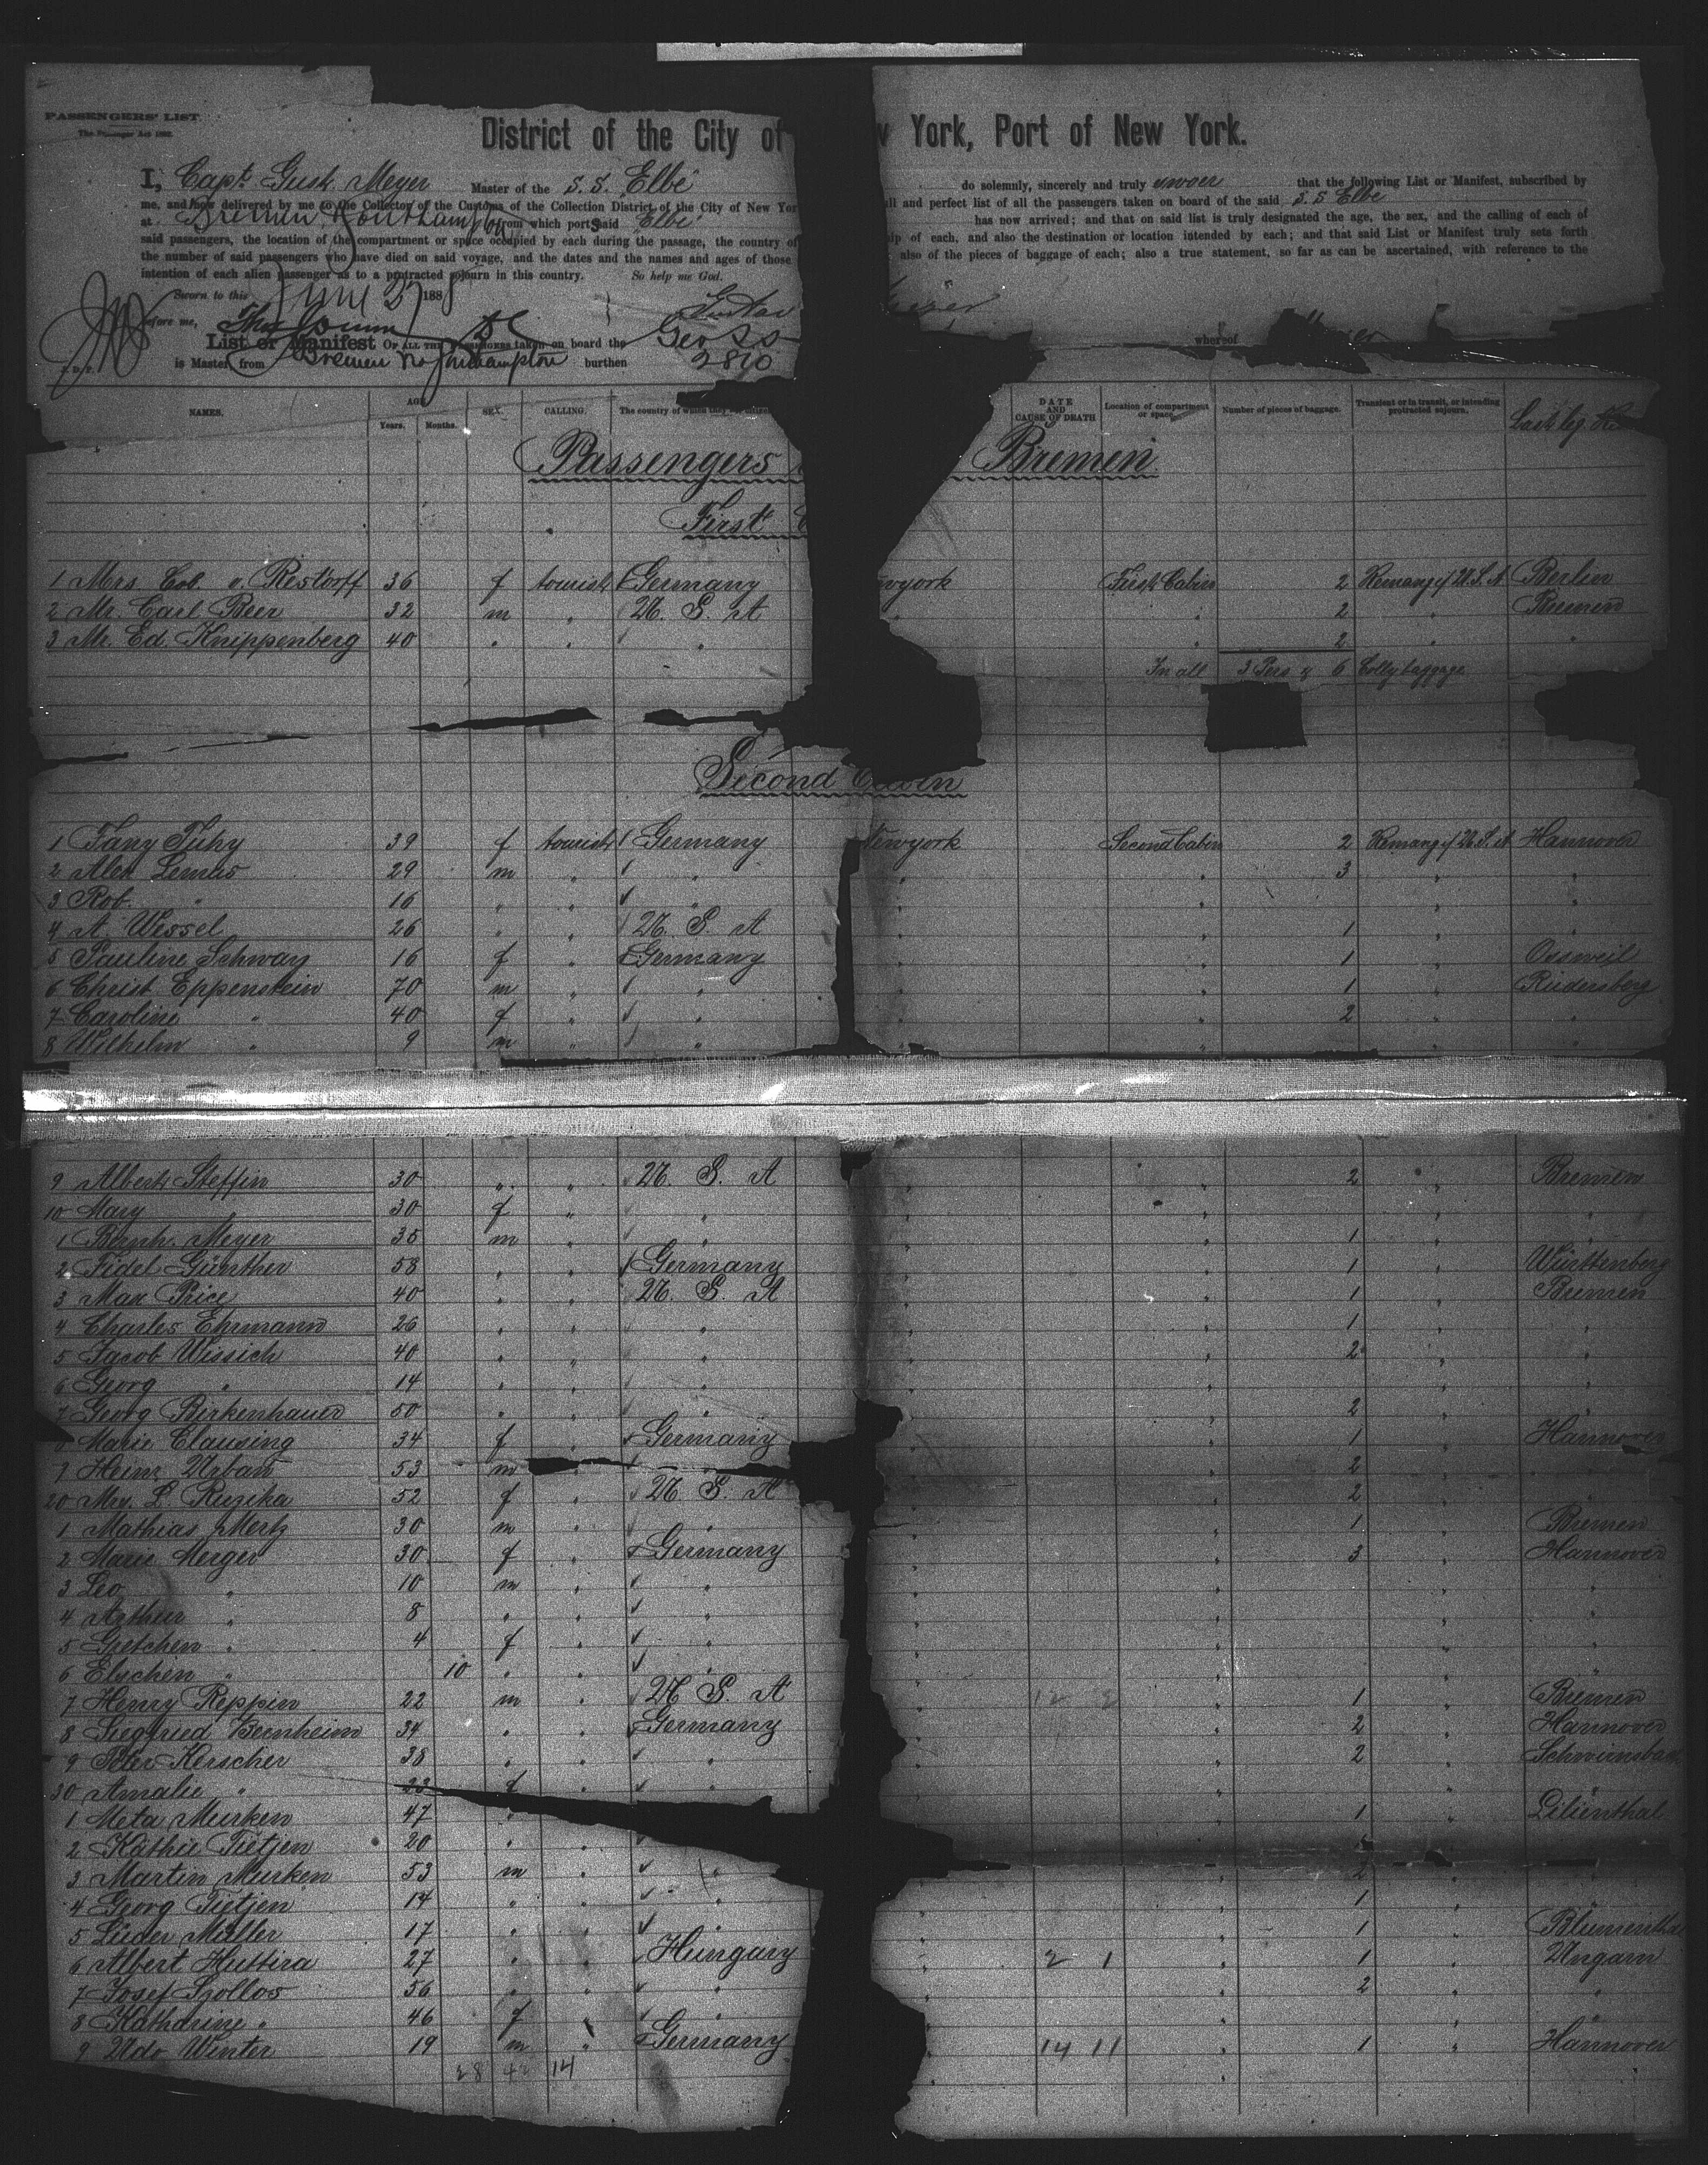 PASSENGERS' LIST.
The Passenger Act 1882.
District of the City of w York, Port of New York.
I, Capt. Gust. Meyer Master of the S. S. Elbe do solemnly, sincerely and truly swear that the following List or Manifest, subscribed by
me, and now delivered by me to the Collector of the Customs of the Collection District of the City of New Yor ll and perfect list of all the passengers taken on board of the said S. S Elbe
at Bremen & Southampton from which port said Elbe has now arrived; and that on said list is truly designated the age, the sex, and the calling of each of
said passengers, the location of the compartment or space occupied by each during the passage, the country of ip of each, and also the destination or location intended by each; and that said List or Manifest truly sets forth
the number of said passengers who have died on said voyage, and the dates and the names and ages of those also of the pieces of baggage of each; also a true statement, so far as can be ascertained, with reference to the
intention of each alien passenger as to a protracted sojourn in this country. So help me God.
Sworn to this June 27 188
before me,
List or Manifest OF ALL THE PASSENGERS taken on board the Ger SS whereof
is Master, from Bremen & Southampton burthen 2810
NAMES. AGE. Years. Months. SEX. CALLING. The country of which they DATE AND CAUSE OF DEATH Location of compartment or space Number of pieces of baggage. Transient or in transit, or intending protracted sojourn. Last leg.
Passengers Bremen
First
1 Mrs. Col. v. Restorff 36 f tourist Germany wyork First Cabin 2 Remang of U.S.A Berlin
2 Mr. Carl Beer 32 m " U. S. A " " 2 " Bremen
3 Mr. Ed. Knippenberg 40 " " " " 2 " "
In all 3 Pers & 6 Colly baggage
Second Cabin
1 Fany Tuhy 39 f tourist Germany Newyork Second Cabin 2 Remang of U.S.A Hannover
2 Alex Lemhs 29 m " " " " 3 " "
3 Rob. " 16 " " " " " " "
4 A. Wessel 26 " " U. S. A " " 1 " "
5 Pauline Schwarz 16 f " Germany " " 1 " Ossweil
6 Christ. Eppenstein 70 m " " " " 1 " Rudersberg
7 Caroline " 40 f " " " " 2 " "
8 Wilhelm " 9 m " " " " " "
9 Albert Steffin 30 " " U. S. A " " 2 " Bremen
10 Mary " 30 f " " " " " "
1 Bernh. Meyer 35 m " " " " 1 " "
2 Fidel Günther 58 " " Germany " " 1 " Württenberg
3 Max Price 40 " " U. S. A " " 1 " Bremen
4 Charles Ehrmann 26 " " " " " 1 " "
5 Jacob Wissich 40 " " " " " 2 " "
6 Georg " 14 " " " " " " "
7 Georg Birkenhauer 50 " " " " " 2 " "
8 Marie Clausing 34 f " Germany " " 1 " Hannover
9 Heinr. Urban 53 m " " " 2 " "
20 Mrs. L. Ruzika 52 f " U. S. A " " 2 " "
1 Mathias Mertz 30 m " " " " 1 " Bremen
2 Marie Merger 30 f " Germany " " 3 " Hannover
3 Leo " 10 m " " " " " "
4 Arthur " 8 " " " " " " "
5 Gretchen " 4 f " " " " " "
6 Elschen " 10 " " " " " " "
7 Henry Reppin 22 m " U. S. A " " 1 " Bremen
8 Siegfried Bernheim 34 " " Germany " " 2 " Hannover
9 Peter Kerscher 38 " " " " " 2 "
30 Amalie " 23 f " " " " " "
1 Meta Murken 47 " " 1 " Lilienthal
2 Käthie Tietjen 20 " " " "
3 Martin Murken 53 m " " " 2 " "
4 Georg Tietjen 14 " " " " " 1 " "
5 Lüder Müller 17 " " " " " 1 " Blumentha
6 Albert Huttira 27 " " Hungary " 2 1 " 1 " Ungarn
7 Josef Szollos 56 " " " " " 2 " "
8 Katharine " 46 f " " " " " "
9 Udo Winter 19 m " Germany " 14 11 " 1 " Hannover
28 42 14